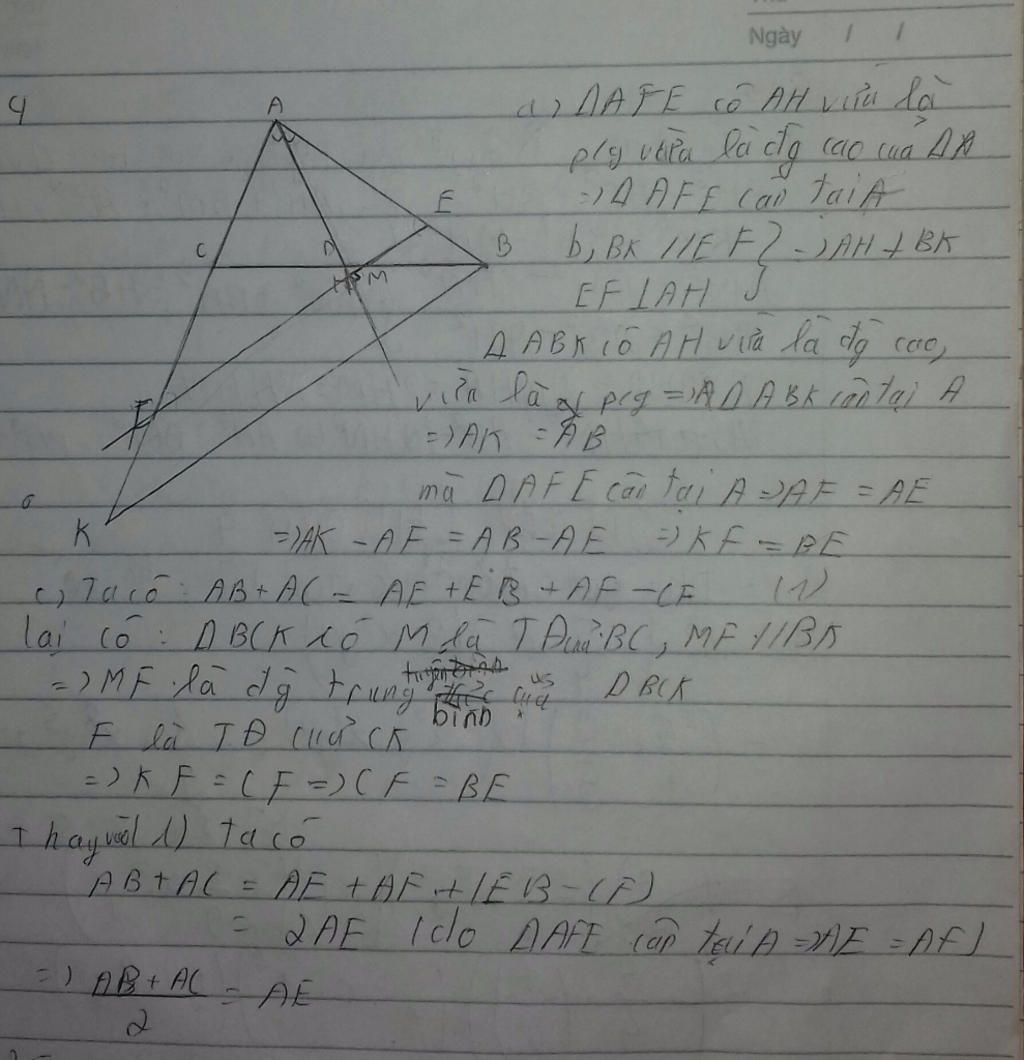 Ngày / /
4
A
E
C
D
B
H
M
F
K
a) ΔAFE có AH vừa là
p/g vừa là đg cao của Δ
=> Δ AFE cân tại A
b, BK // EF } => AH ⊥ BK
EF ⊥ AH
Δ ABK có AH vừa là đg cao,
vừa là p/g => Δ ABK cân tại A
=> AK = AB
mà ΔAFE cân tại A => AF = AE
=> AK - AF = AB - AE => KF = BE
c, Ta có: AB + AC = AE + EB + AF - CF (1)
lại có: ΔBCK có M là TĐ của BC, MF // BK
=> MF là đg trung bình của Δ BCK
F là TĐ của CK
=> KF = CF => CF = BE
Thay vào 1) ta có
AB + AC = AE + AF + (EB - CF)
= 2AE (do ΔAFE cân tại A => AE = AF)
=> AB + AC / 2 = AE